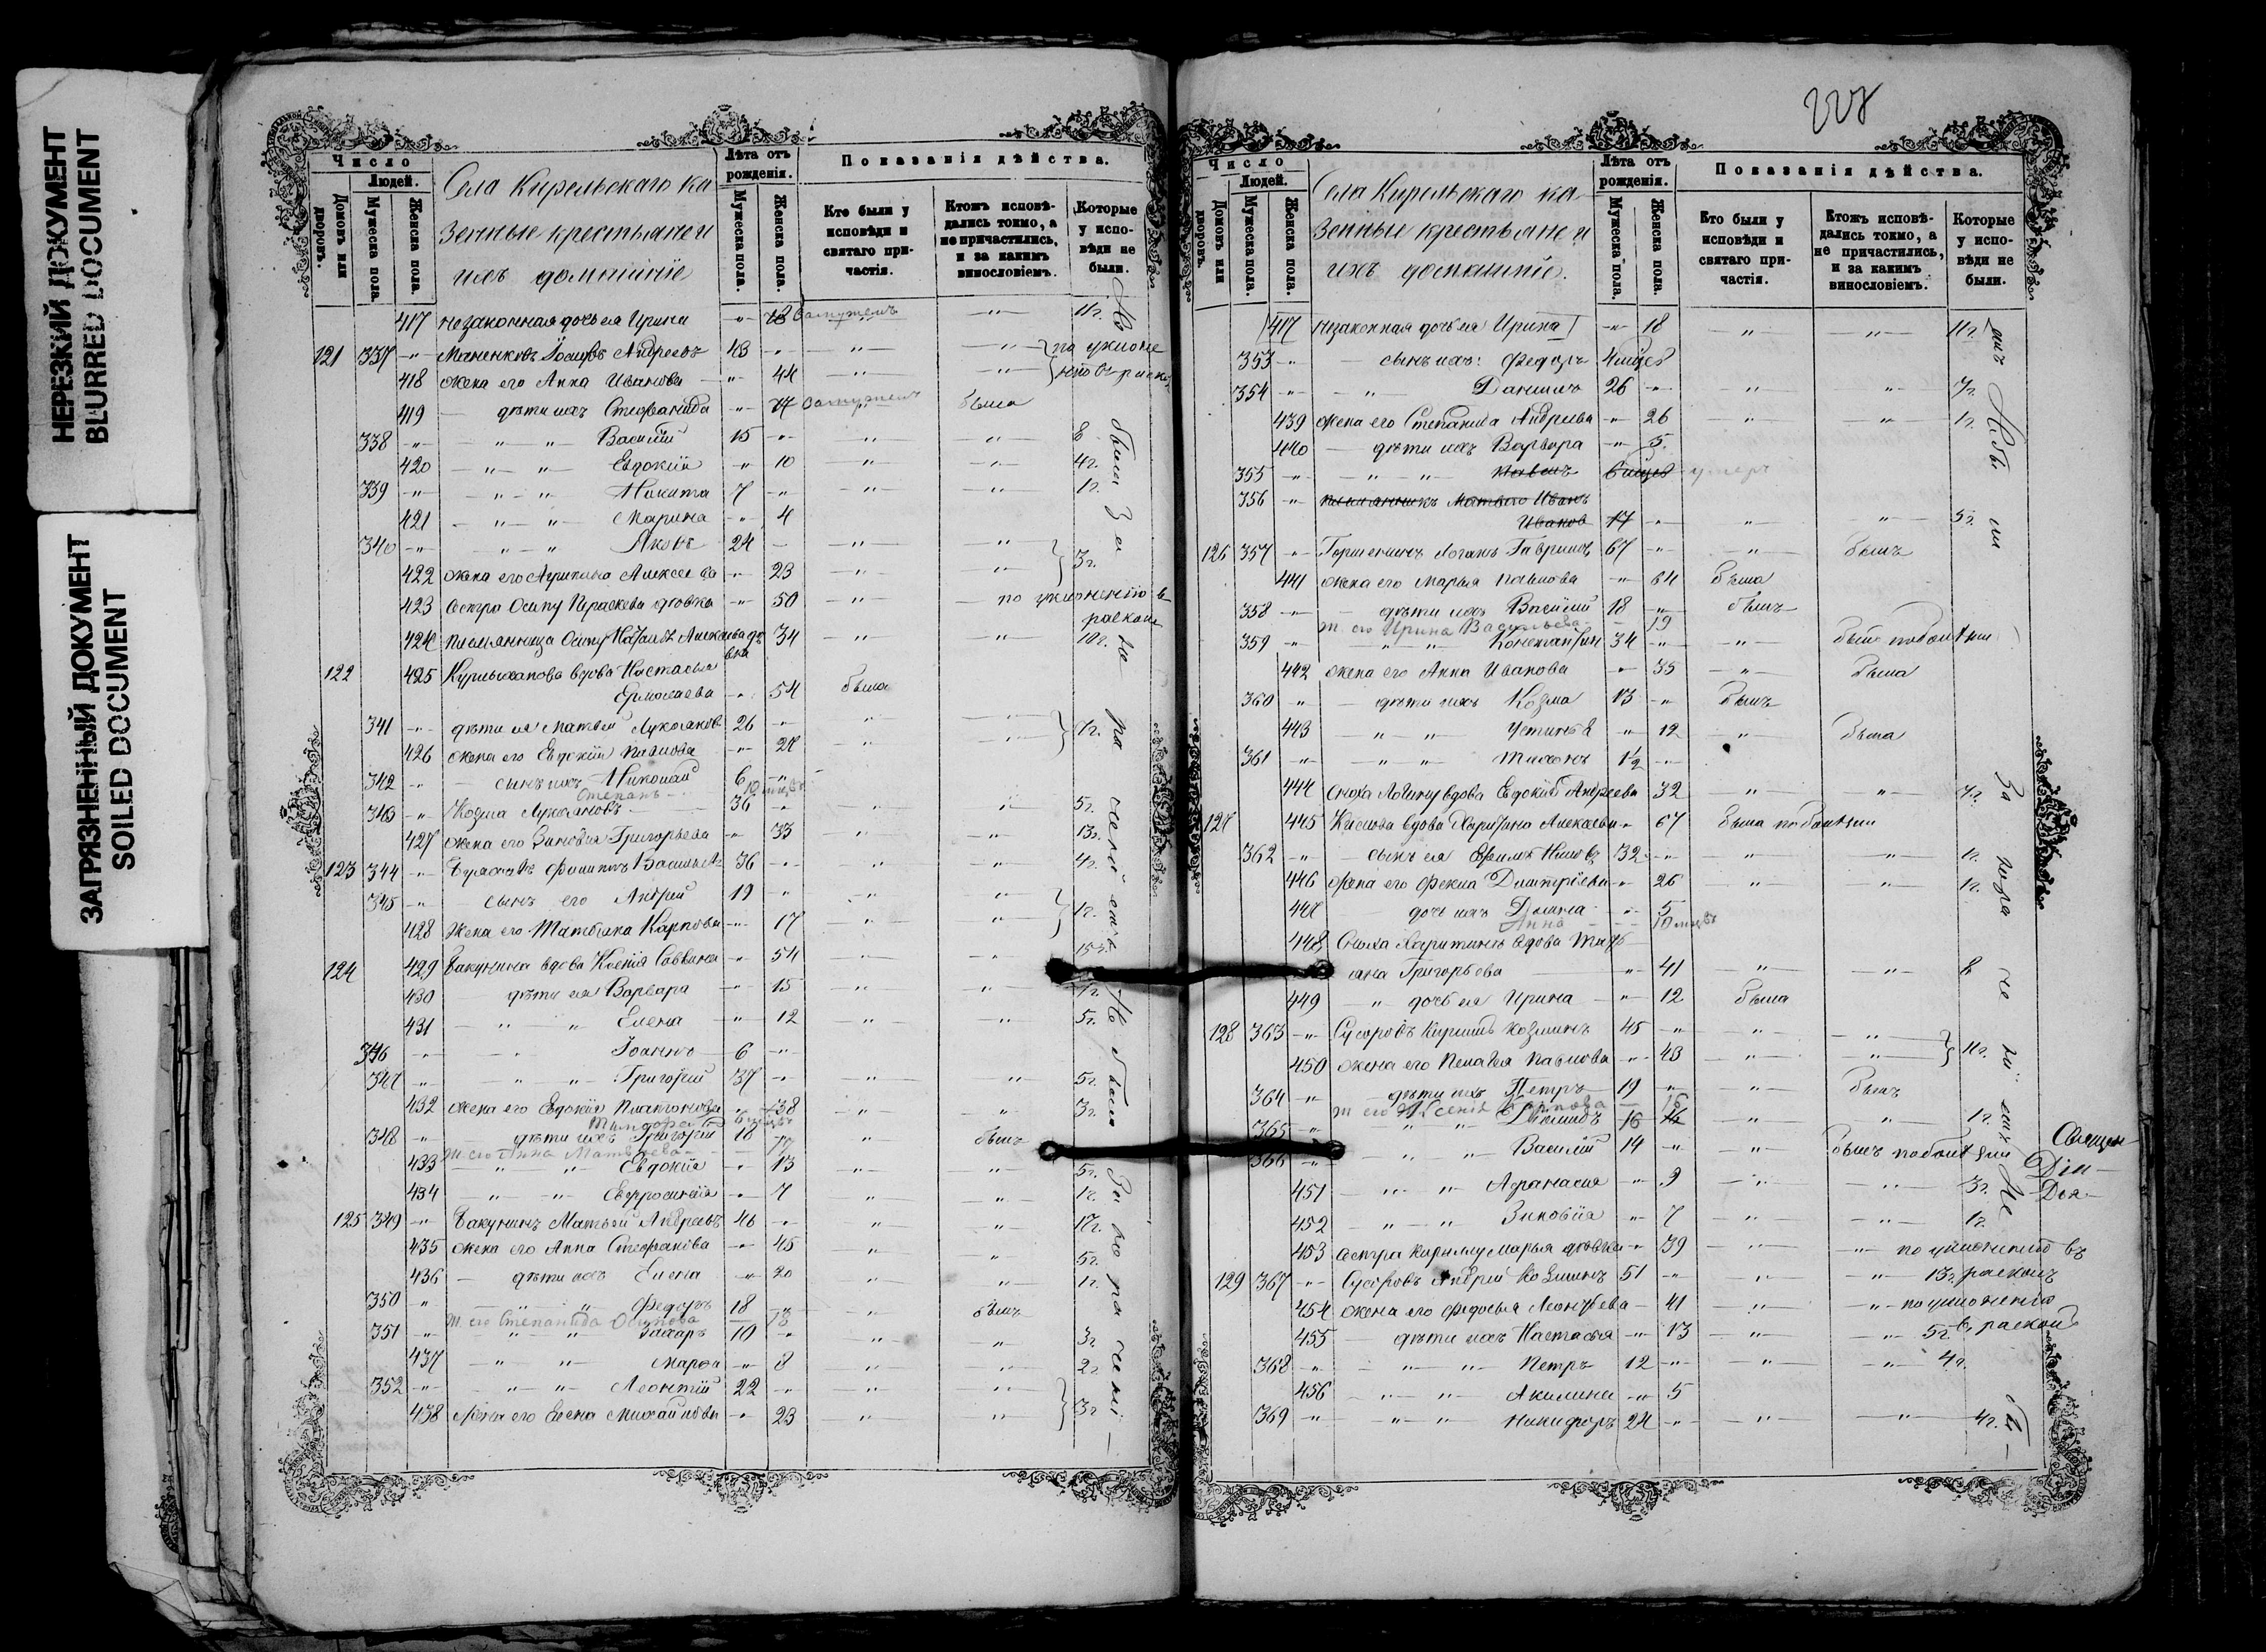 НЕРЕЗКИЙ ДОКУМЕНТ
BLURRED DOCUMENT
ЗАГРЯЗНЕННЫЙ ДОКУМЕНТ
SOILED DOCUMENT
Число
Людей.
Домовъ или дворовъ.
Мужеска пола.
Женска пола.
Села Кирельскаго ка
зенные крестьяне и
ихъ домашніе
Лѣта отъ рожденія.
Мужеска пола.
Женска пола.
Показанія дѣйства.
Кто были у исповѣди и святаго причастія.
Ктожъ исповѣдались токмо, а не причастились, и за какимъ винословіемъ.
Которые у исповѣди не были.
417 незаконная дочь ея Ирина 18 Замужемъ 11 г.
121 337 Осипъ Андреевъ 43
418 жена его Анна Иванова 44
419 дѣти ихъ Стефанида 17 Замужемъ была
338 Василій 15 8
420 Евдокія 10 4 г.
339 Никита 7 1 г.
421 Марина 4
340 Яковъ 24
422 жена его Алексеева 23 3 г.
423 сестра Осипу Параскева дѣвка 50 по уклоненію въ
расколъ
424 племянница Осипу Алексеева дѣ 34 10 г.
вка
122 425 вдова Настасья
Ермолаева 54 была
341 дѣти ея Матвей Лукоянов 26
426 жена его Евдокія Павлова 24 1 г.
342 сынъ ихъ Николай 6
Степанъ
343 Козма Лукояновъ 36 5 г.
427 жена его Зиновія Григорьева 33 13 г.
123 344 Филиппъ Васильев 36 4 г.
345 сынъ его Андрей 19
428 жена его Татьяна Карпова 17 1 г.
124 429 Бакунина вдова Ксенія Саввина 54 15 г.
430 дѣти ея Варвара 15 1 г.
431 Елена 12 5 г.
346 Іоаннъ 6
347 Григорій 37 5 г.
432 жена его Евдокія Платонова 38 3 г.
348 дѣти ихъ Григорій 18 былъ
ж. его Анна Матвѣева
433 Евдокія 13 5 г.
434 Евфросинія 7 1 г.
125 349 Бакунинъ Матвей Андреевъ 46 17 г.
435 жена его Анна Стефанова 45 5 г.
436 дѣти ихъ Елена 20 1 г.
350 Федоръ 18 былъ
ж. его Степанида Осипова 18
351 Захаръ 10 3 г.
437 Марфа 8 2 г.
352 Леонтій 22
438 жена его Елена Михайлова 23 3 г.
Число
Людей.
Домовъ или дворовъ.
Мужеска пола.
Женска пола.
Села Кирельскаго ка
зенные крестьяне и
ихъ домашніе.
Лѣта отъ рожденія.
Мужеска пола.
Женска пола.
Показанія дѣйства.
Кто были у исповѣди и святаго причастія.
Ктожъ исповѣдались токмо, а не причастились, и за какимъ винословіемъ.
Которые у исповѣди не были.
417 незаконная дочь ея Ирина 18 11 г.
353 сынъ ихъ: Федоръ
354 Даниилъ 26 7 г.
439 жена его Степанида Андреева 26 1 г.
440 дѣти ихъ Варвара 5
355 Павелъ умеръ
356 племянникъ Матвею Иванъ
Иванов 17 5 г.
126 357 Логинъ Гавриловъ 67 былъ
441 жена его Марья Павлова 64 была
358 дѣти ихъ Василій 18 былъ
ж. его Ирина Васильева 19
359 Константин 34 былъ по болѣзни
442 жена его Анна Иванова 35 была
360 дѣти ихъ Козма 13 былъ
443 Устинья 12 была
361 Тихонъ 1½
444 сноха Логину вдова Евдокія Андреева 32 7 г.
127 445 вдова Харитина Алексеева 67 была по болѣзни
362 сынъ ея Ефимъ 32 1 г.
446 жена его Фекла Димитріева 26 1 г.
447 дочь ихъ Домна 5
Анна 10 мцвъ
448 Сноха Харитинѣ вдова Тать
яна Григорьева 41 8
449 дочь ея Ирина 12 была
128 363 Суворовъ Кирилъ Козминъ 45
450 жена его Пелагея Павлова 43 11 г.
364 дѣти ихъ Петръ 19 былъ
ж. его Ксенія 16
365 16 1 г.
366 Василій 14 былъ по болѣзни
451 Афанасія 9 3 г.
452 Зиновія 7 1 г.
453 сестра Кирилу Марья дѣвка 39 по уклоненію въ
129 367 Суворовъ Андрей Козминъ 51 13 г. расколъ
454 жена его Федосья Леонтьева 41 по уклоненію
455 дѣти ихъ Настасья 13 5 г. въ расколъ
368 Петръ 12 4 г.
456 Акилина 5
369 Никифоръ 24 4 г.
Священ
Дія